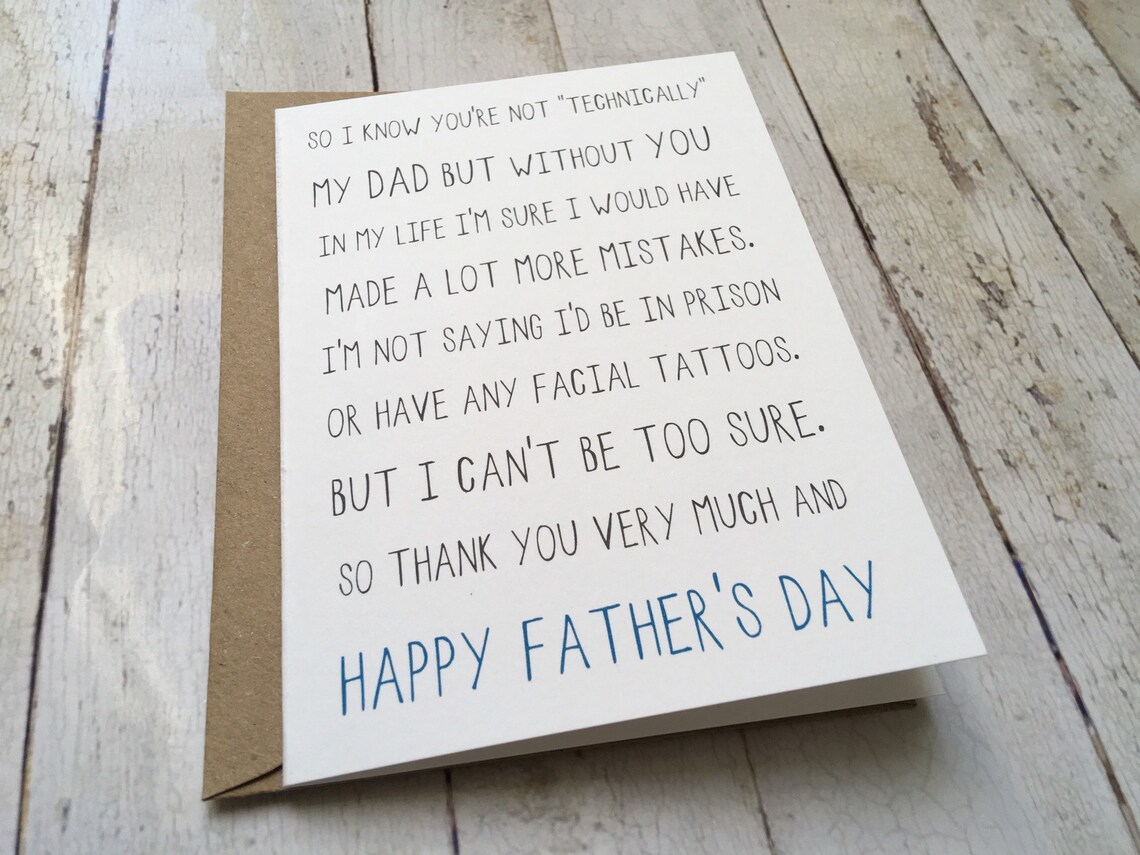 SO I KNOW YOU'RE NOT "TECHNICALLY"
MY DAD BUT WITHOUT YOU
IN MY LIFE I'M SURE I WOULD HAVE
MADE A LOT MORE MISTAKES.
I'M NOT SAYING I'D BE IN PRISON
OR HAVE ANY FACIAL TATTOOS.
BUT I CAN'T BE TOO SURE.
SO THANK YOU VERY MUCH AND
HAPPY FATHER'S DAY